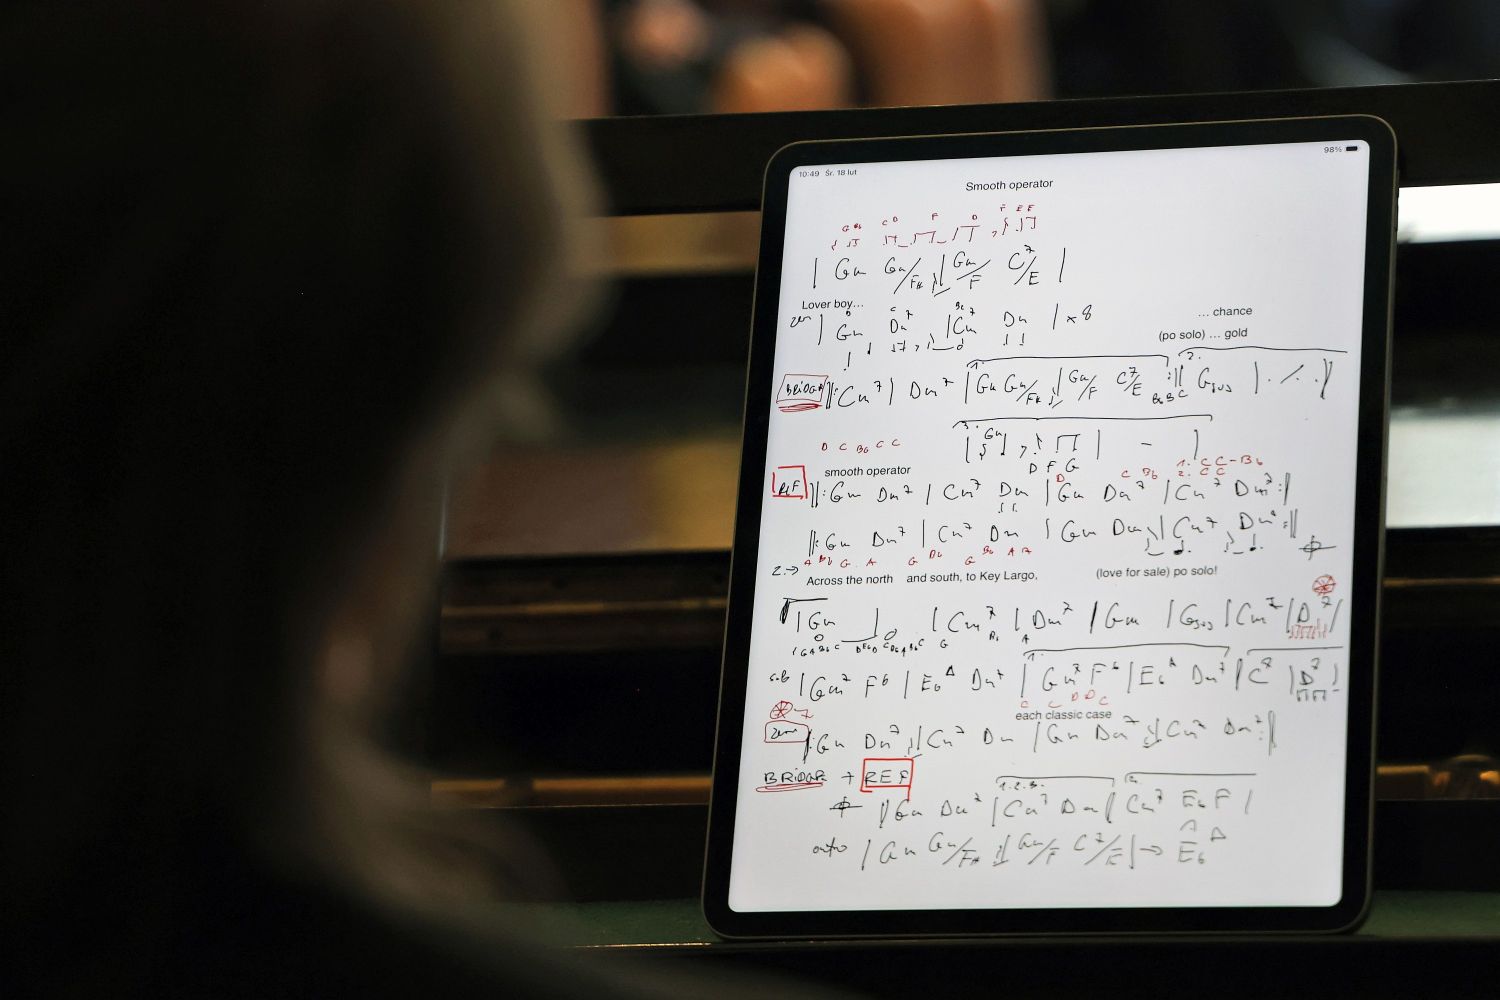 10:49 Śr. 18 lut 98%
Smooth operator
G Bb C D F D F E E
| Gm Gm/F# | Gm/F C7/E |
Lover boy…
… chance
| Gm Dm7 | Cm7 Dm | x 8
(po solo) … gold
BRIDGE ||: Cm7 | Dm7 | 1. Gm Gm/F# | Gm/F C7/E :|| 2. Gsus | ∙/∙ ||
Bb B C
3. | Gm | – |
D C Bb C C
D F G
smooth operator
D C Bb 1. C C – Bb 2. C C
REF ||: Gm Dm7 | Cm7 Dm | Gm Dm7 | Cm7 Dm7 :||
||: Gm Dm7 | Cm7 Dm | Gm Dm | Cm7 Dm7 :||
A Bb G A G Bb G Bb A A
2. →
Across the north and south, to Key Largo, (love for sale) po solo!
| Gm | | Cm7 | Dm7 | Gm | Gsus | Cm7 | D7 |
G Bb A
solo | Gm7 F6 | Eb Δ Dm7 | 1. Gm7 F6 | Eb Δ Dm7 | C7 | D7 |
C C D D C
each classic case
||: Gm Dm7 | Cm7 Dm | Gm Dm7 | Cm7 Dm7 :||
BRIDGE + REF
| Gm Dm7 | 1.2.3. Cm7 Dm | Cm7 Eb F |
outro | Gm Gm/F# | Gm/F C7/E | → Eb Δ